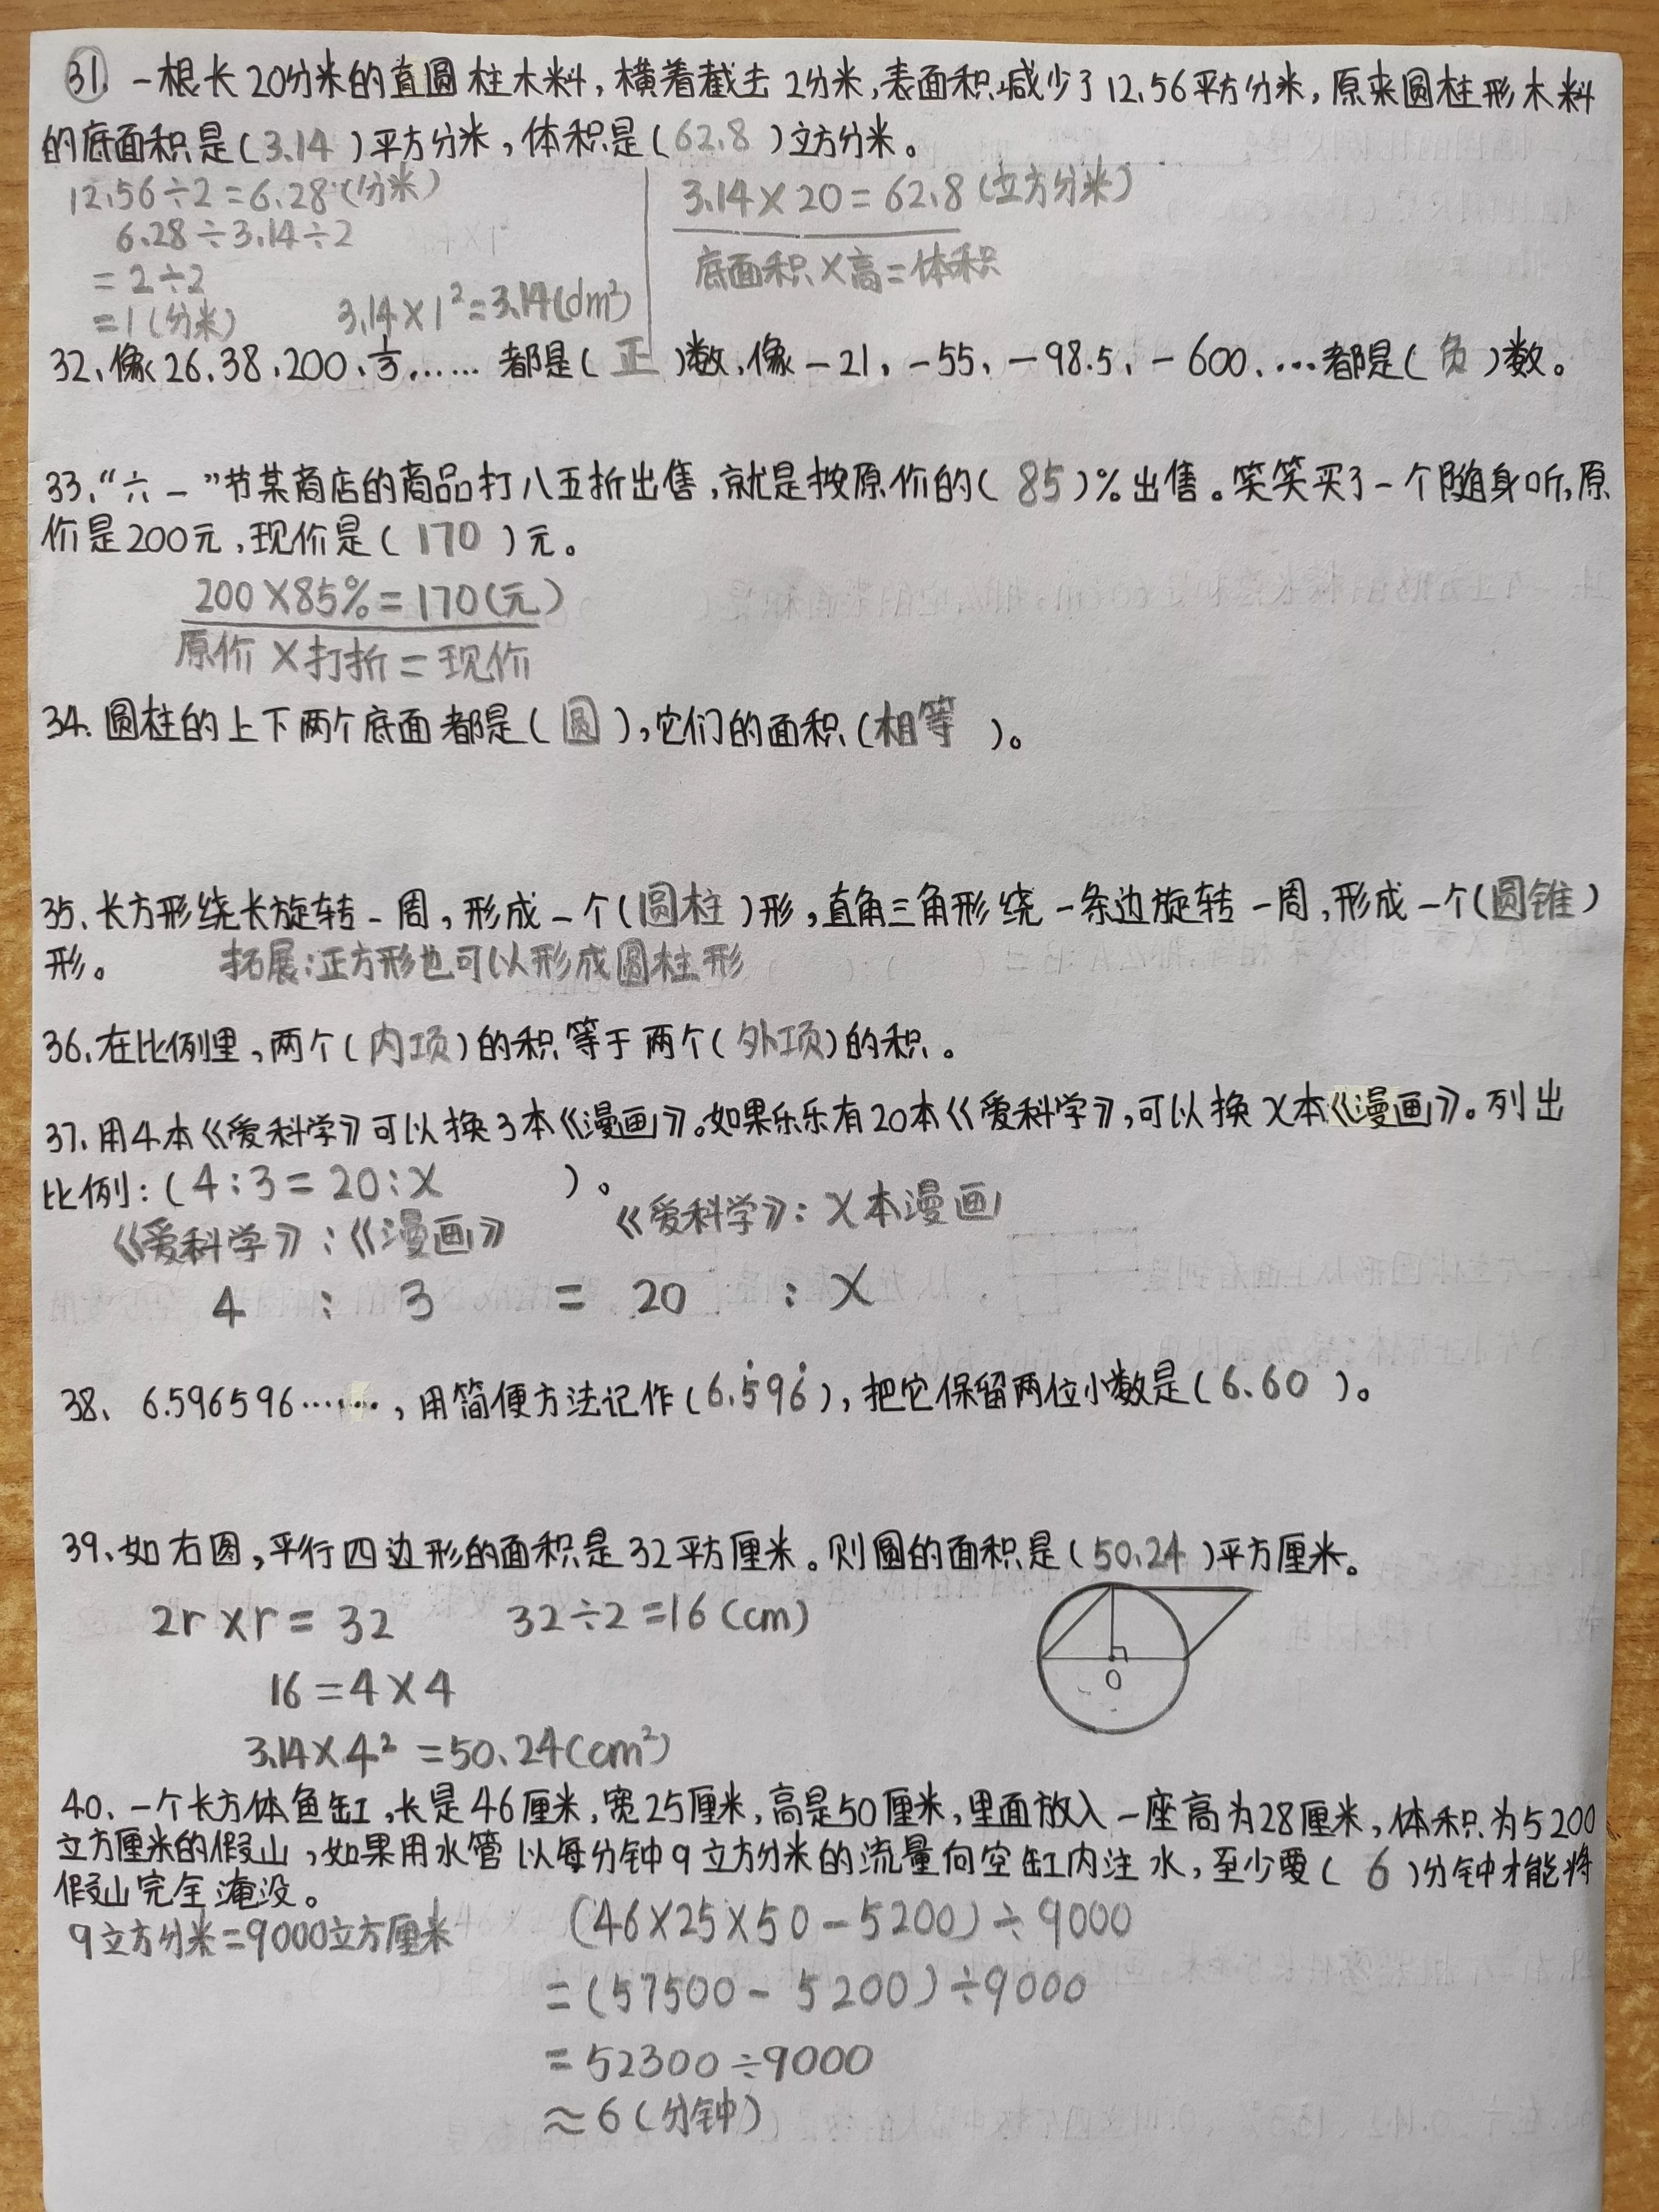 31. 一根长20分米的直圆柱木料,横着截去2分米,表面积减少了12.56平方分米,原来圆柱形木料
的底面积是(3.14)平方分米,体积是(62.8)立方分米。
12.56÷2=6.28(分米)
6.28÷3.14÷2
=2÷2
=1(分米)
3.14×1²=3.14(dm²)
3.14×20=62.8(立方分米)
底面积×高=体积
32、像26、38、200、1/3……都是(正)数,像-21,-55、-98.5,-600、…都是(负)数。
33、“六一”节某商店的商品打八五折出售,就是按原价的(85)%出售。笑笑买了一个随身听,原
价是200元,现价是(170)元。
200×85%=170(元)
原价×打折=现价
34. 圆柱的上下两个底面都是(圆),它们的面积(相等)。
35、长方形绕长旋转一周,形成一个(圆柱)形,直角三角形绕一条边旋转一周,形成一个(圆锥)
形。 拓展:正方形也可以形成圆柱形
36、在比例里,两个(内项)的积等于两个(外项)的积。
37、用4本《爱科学》可以换3本《漫画》。如果乐乐有20本《爱科学》,可以换X本《漫画》。列出
比例:(4:3=20:X )。
《爱科学》:《漫画》 《爱科学》:X本漫画
4 : 3 = 20 : X
38、6.596596……,用简便方法记作(6.5̇96̇),把它保留两位小数是(6.60)。
39、如右图,平行四边形的面积是32平方厘米。则圆的面积是(50.24)平方厘米。
2r×r=32 32÷2=16(cm)
16=4×4
3.14×4²=50.24(cm²)
O
40、一个长方体鱼缸,长是46厘米,宽25厘米,高是50厘米,里面放入一座高为28厘米,体积为5200
立方厘米的假山,如果用水管以每分钟9立方分米的流量向空缸内注水,至少要(6)分钟才能将
假山完全淹没。
9立方分米=9000立方厘米
(46×25×50-5200)÷9000
=(57500-5200)÷9000
=52300÷9000
≈6(分钟)